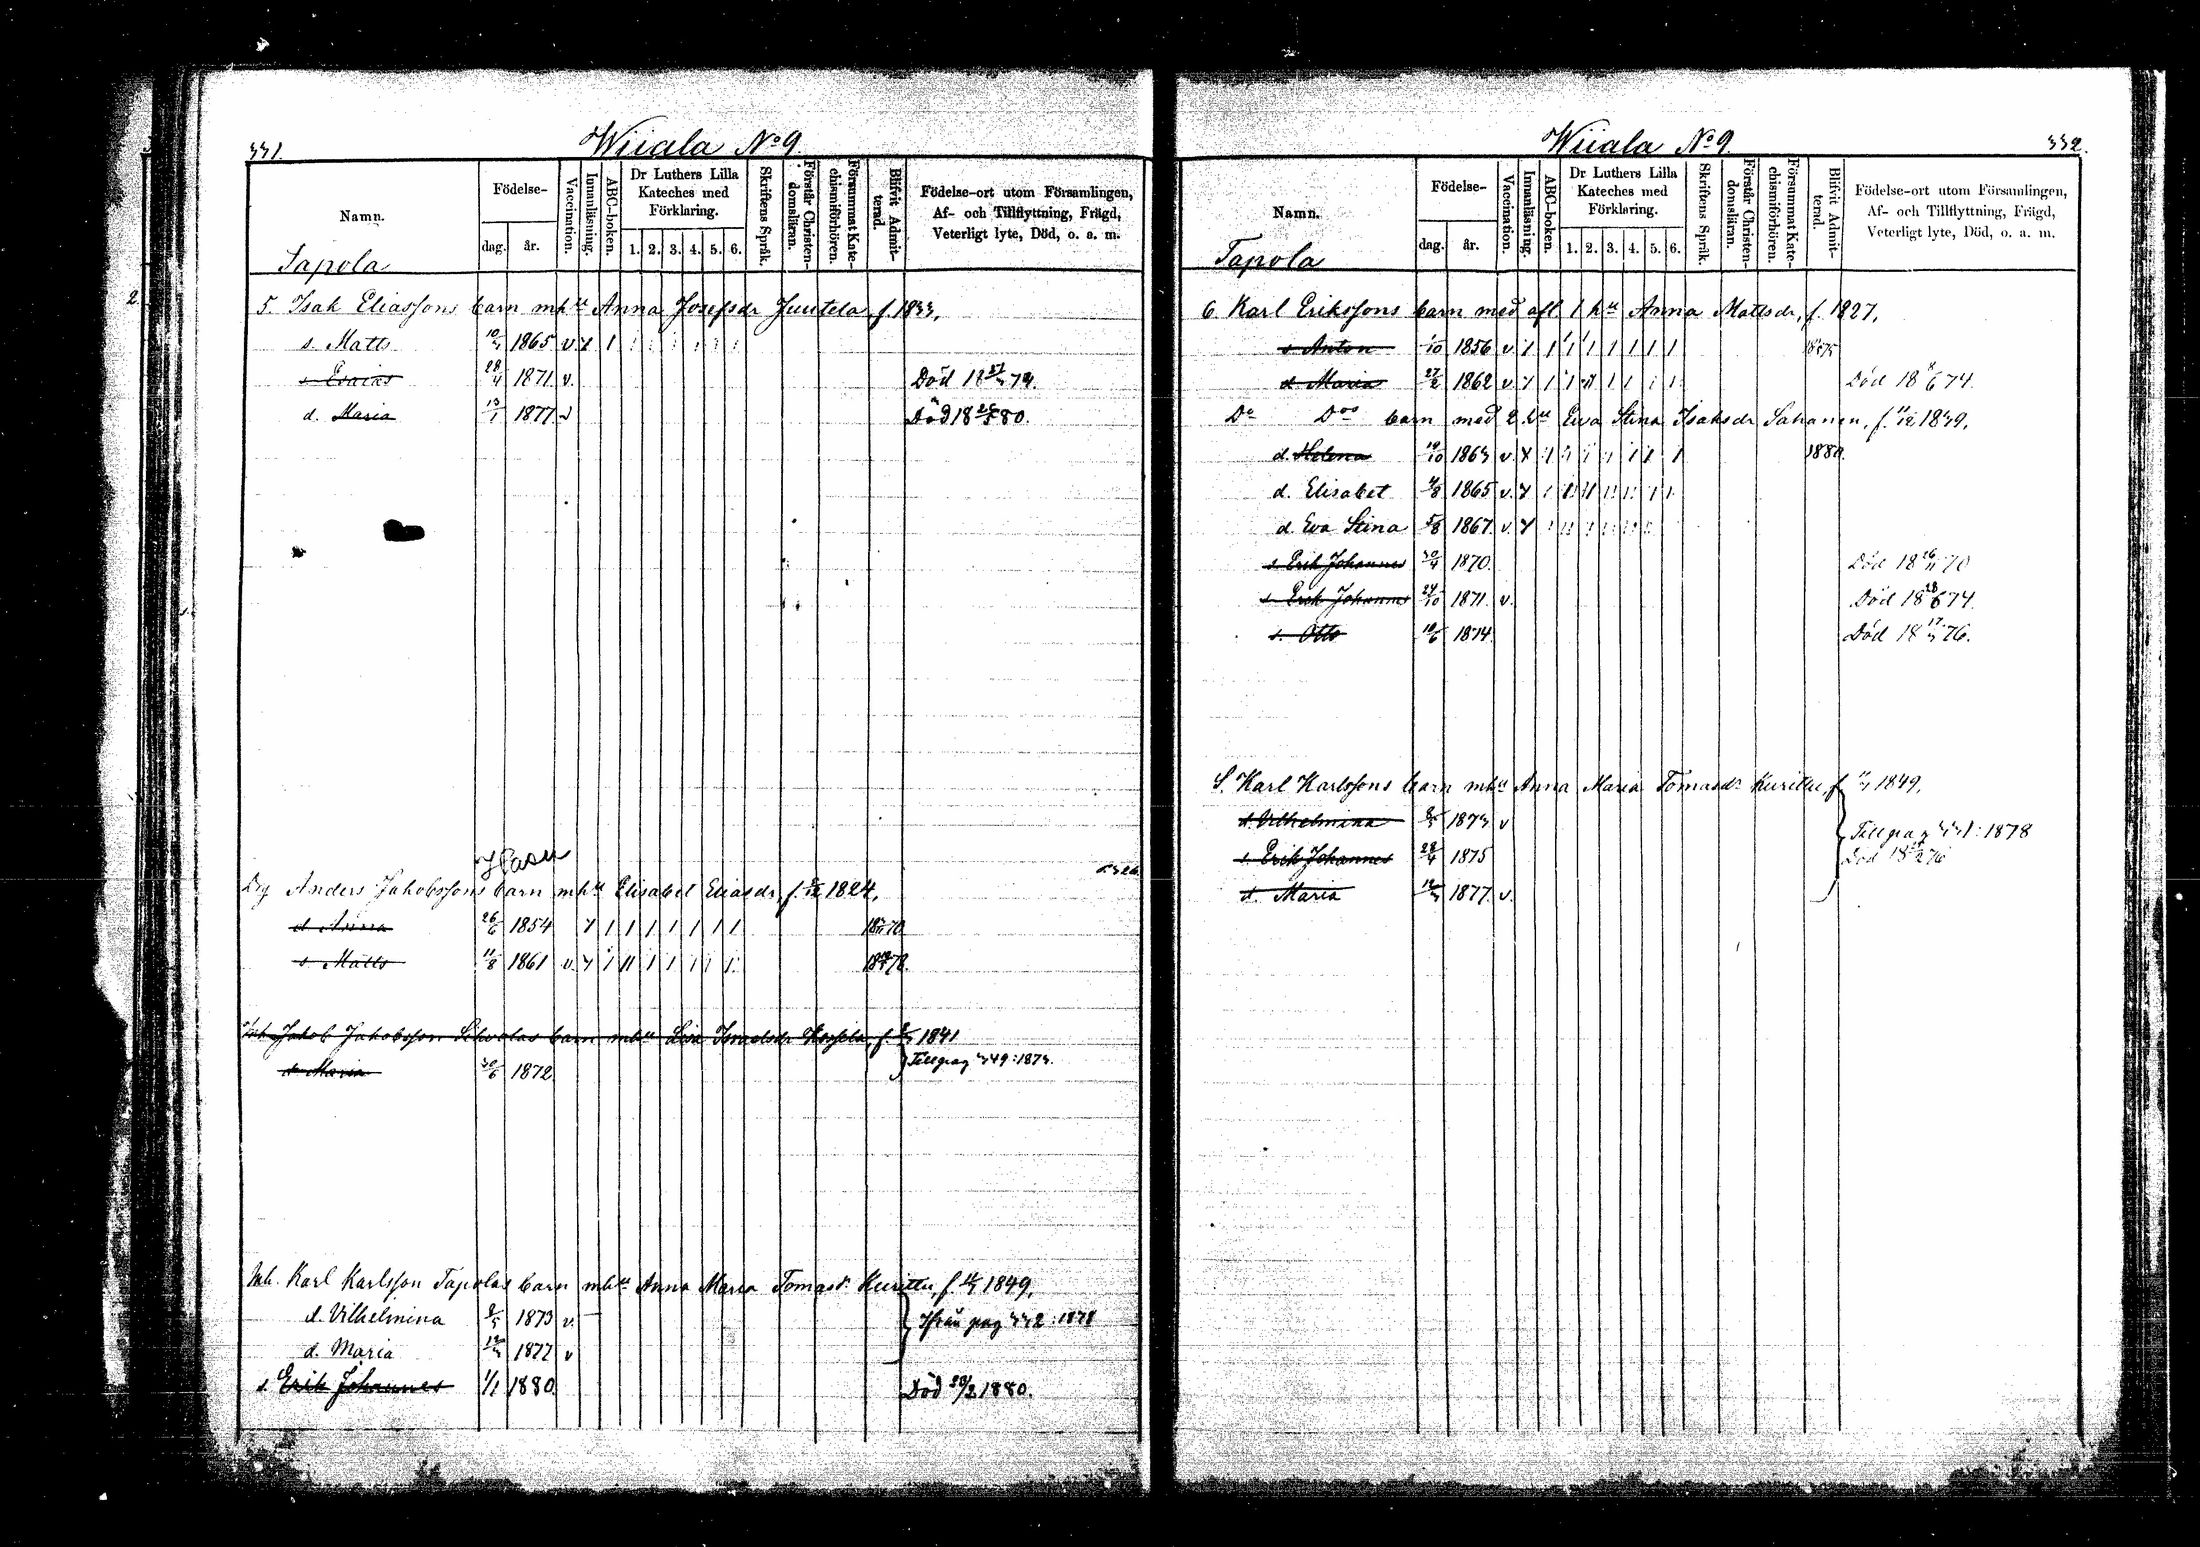 331.
Wiiala No 9.
Namn.
Födelse-
dag.
år.
Vaccination.
Innanläsning.
ABC-boken.
Dr Luthers Lilla
Kateches med
Förklaring.
1. 2. 3. 4. 5. 6.
Skriftens Språk.
Förstår Christen-
domsläran.
Försummat Kate-
chismiförhören.
Blifvit Admit-
terad.
Födelse-ort utom Församlingen,
Af- och Tillflyttning, Frägd,
Veterligt lyte, Död, o. s. m.
Tapola
5. Isak Eliassons barn mhu Anna Josefsdr Juutela, f. 1833,
s. Matts 1865 v.
s. Esaias 28/4 1871 v. Död
d. Maria 13/1 1877 Död 1880.
Hasu
Anders Jakobssons barn mhu Elisabet Eliasdr, f. 1824,
d. Anna 26/6 1854 1870
s. Matts 11/8 1861 v. 1878
Jakob Jakobsson barn mhu Lisa Israelsdr f. 1841
d. Maria 30/6 1872 Till pag 349:1873.
Karl Karlsson Tapolas barn mhu Anna Maria Tomasdr Kurittu, f. 1849,
d. Vilhelmina 1873 v.
Ifrån pag 332:1878
d. Maria 1877 v
s. Erik Johannes 1/1 1880 Död 1880.
332.
Wiiala No 9
Namn.
Födelse-
dag.
år.
Vaccination.
Innanläsning.
ABC-boken.
Dr Luthers Lilla
Kateches med
Förklaring.
1. 2. 3. 4. 5. 6.
Skriftens Språk.
Förstår Christen-
domsläran.
Försummat Kate-
chismiförhören.
Blifvit Admit-
terad.
Födelse-ort utom Församlingen,
Af- och Tillflyttning, Frägd,
Veterligt lyte, Död, o. s. m.
Tapola
6. Karl Erikssons barn med afl. 1 hu Anna Mattsdr, f. 1827,
s Anton 1856 v 1875
d. Maria 27/2 1862 v Död
Do Doo barn med 2 hu Eva Stina Isaksdr Sahanen, f. 1839,
d. Helena 19/10 1863 v 1880
d. Elisabet 1865 v.
d. Eva Stina 5/8 1867 v.
s Erik Johannes 30/4 1870. Död
s. Erik Johannes 24/10 1871 v. Död
s. Otto 1874. Död
S. Karl Karlssons barn mhu Anna Maria Tomasdr Kurittu, f. 1849,
d. Vilhelmina 1873 v
Till pag 331:1878
s. Erik Johannes 28/4 1875 Död
d. Maria 1877. v.